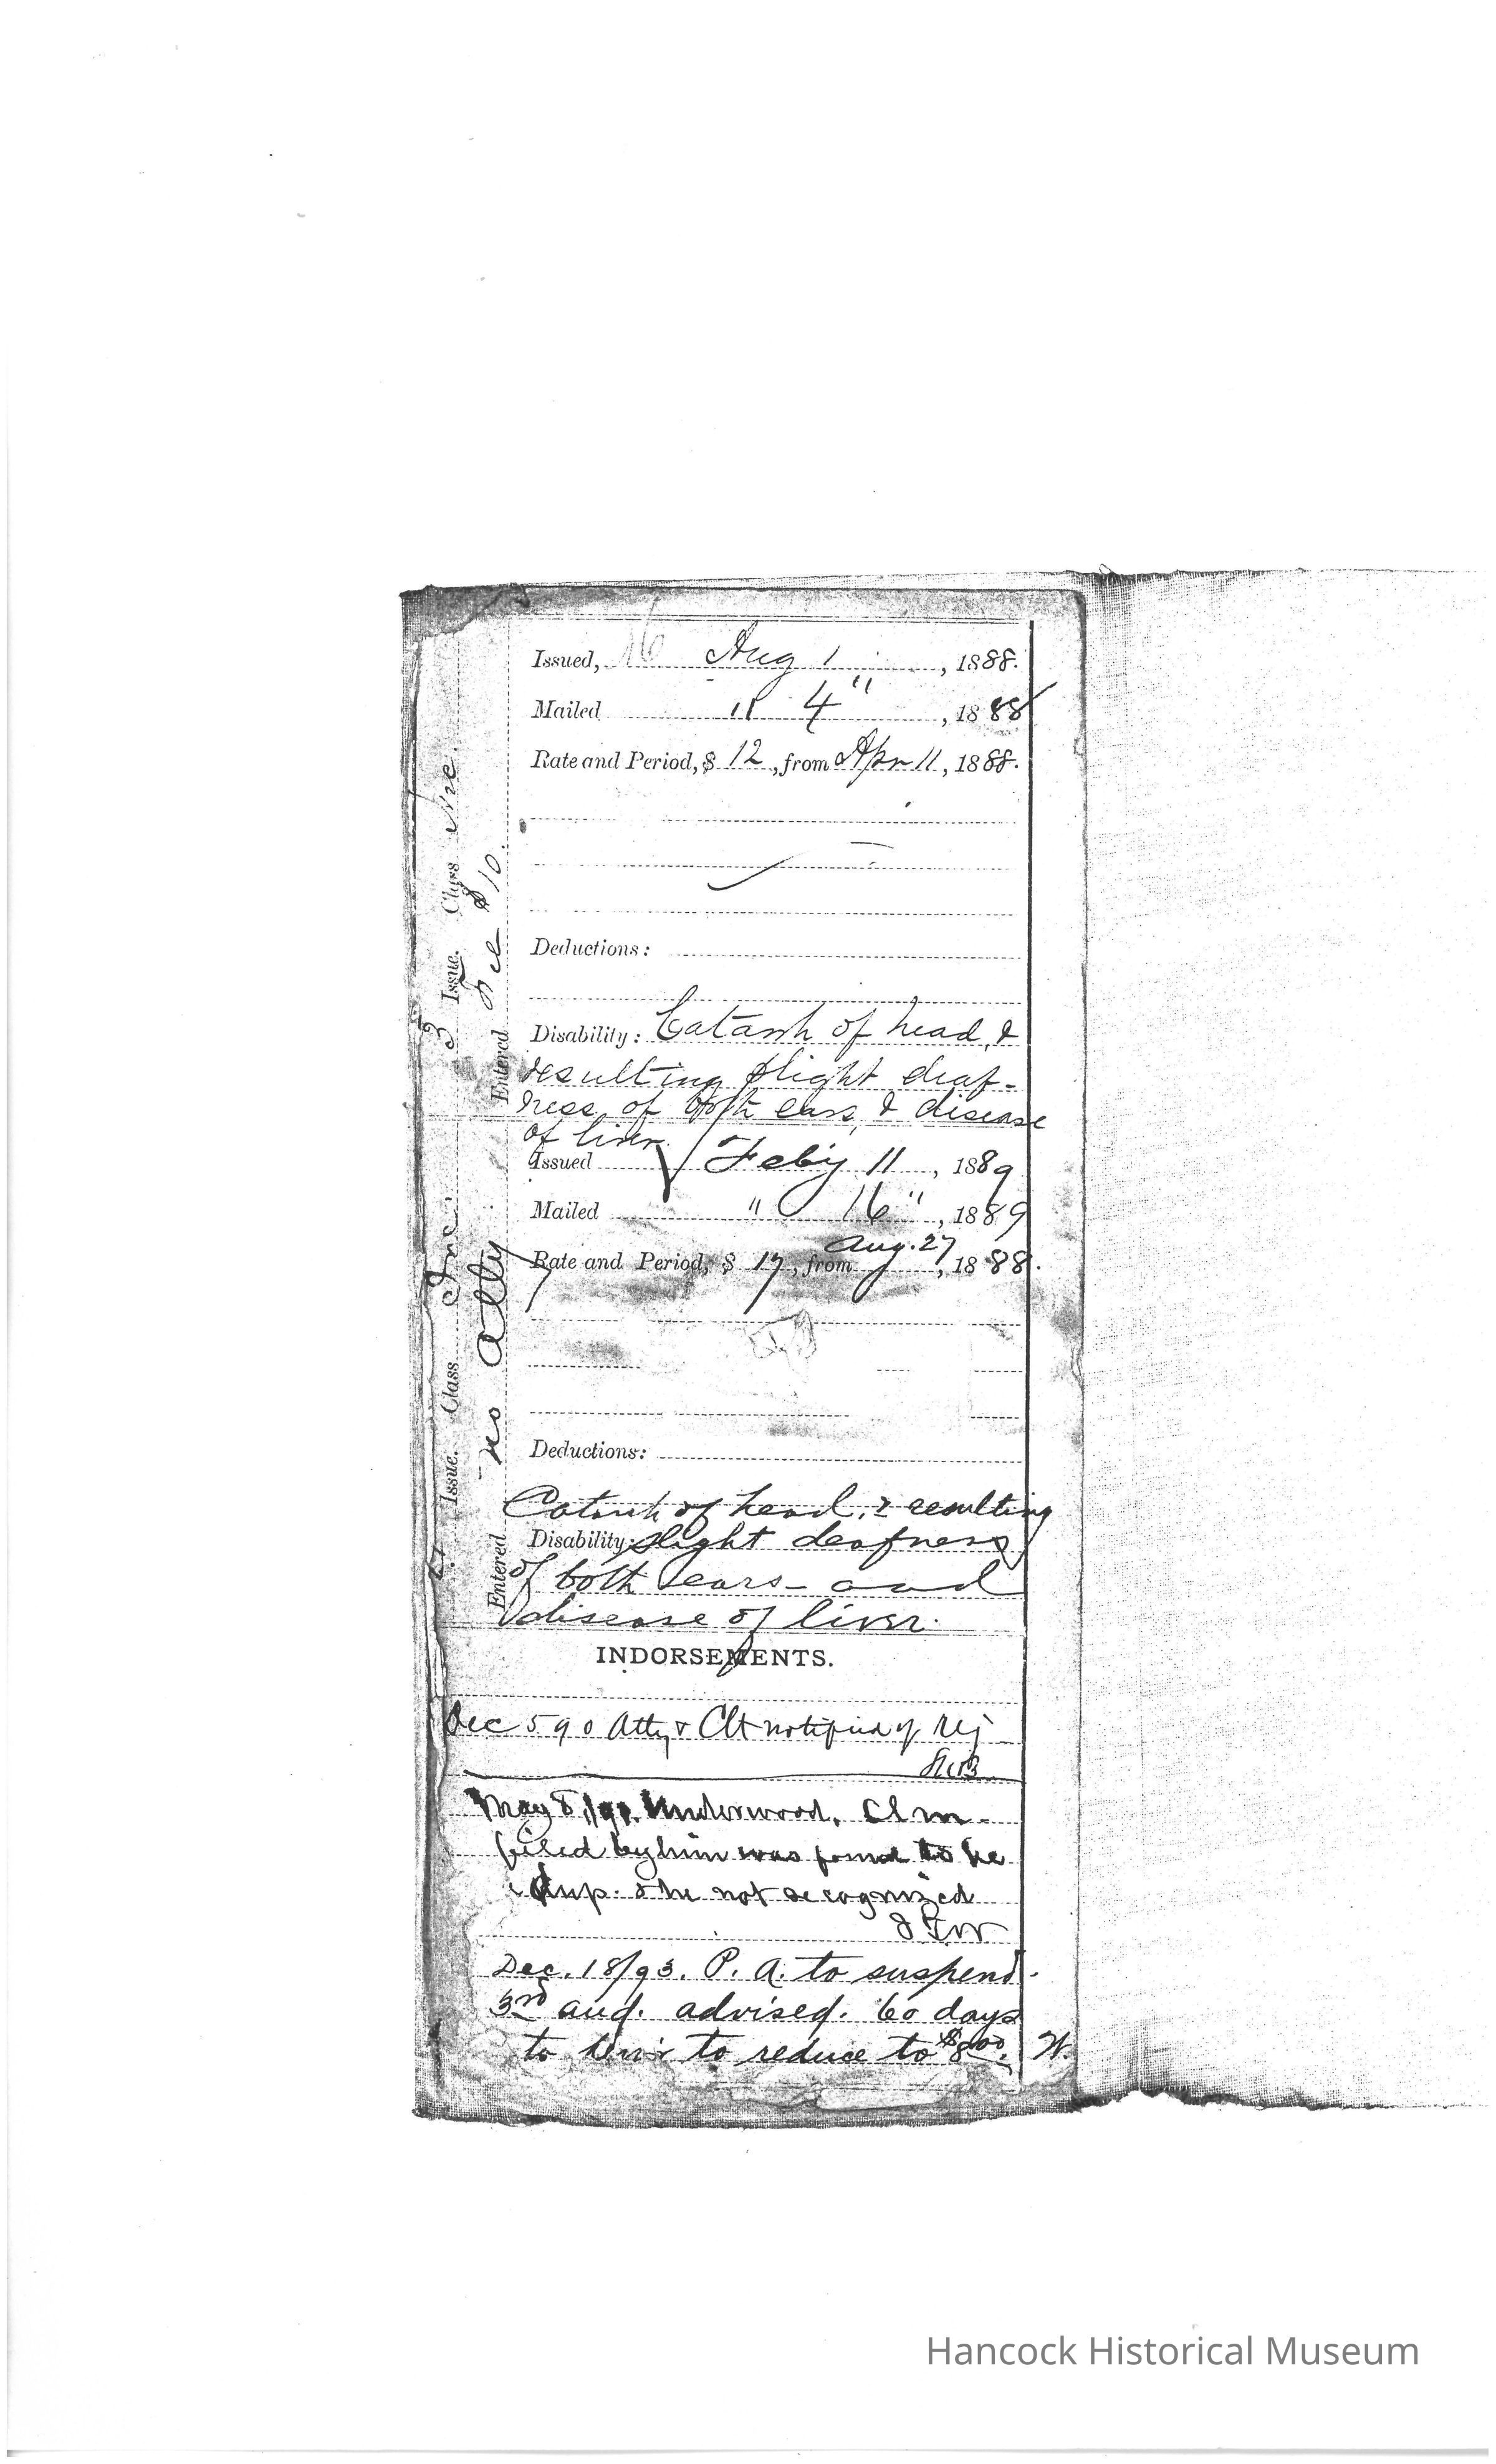 Issued, Aug 1, 1888.
Mailed " 4", 1888
Rate and Period, $ 12, from Apr 11, 1888.
Deductions:
Disability: Catarrh of head, &
resulting slight deaf-
ness of both ears, & disease
of liver.
Issued Feby 11, 1889
Mailed " 16", 1889
Aug. 27
Rate and Period, $ 17, from, 1888.
Deductions:
Catarrh of head, & resulting
Disability: slight deafness
of both ears - and
disease of liver.
INDORSEMENTS.
Dec 5 90 Atty & Clt notified of rej
May 8/91. Underwood, Clm.
filed by him was found to be
dup. & he not recognized
Dec. 18/93. P. A. to suspend.
3rd aud. advised. 60 days
to to reduce to $8.00. W.
3 Issue. Class
Entered $10.
Issue. Class Inc.
Entered no atty
Hancock Historical Museum